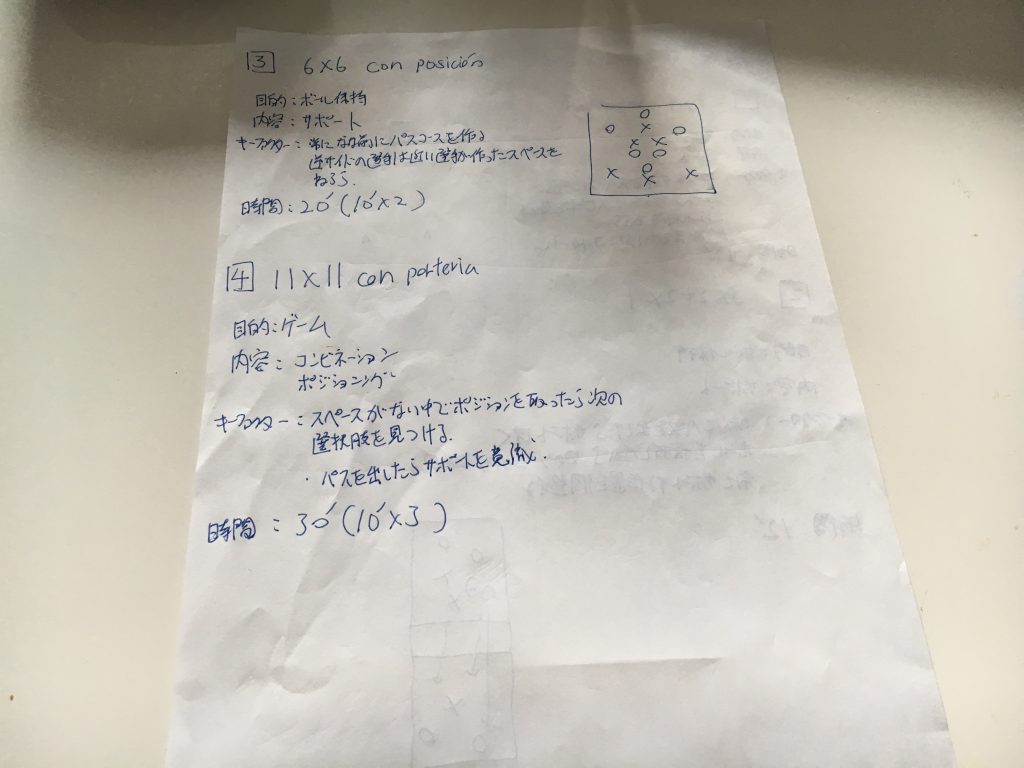 3 6×6 con posición
目的：ボール保持
内容：サポート
キーファクター：常にななめ前にパスコースを作る
逆サイドの選手は近い選手が作ったスペースを
ねらう.
時間：20´(10´×2)
4 11×11 con porteria
目的：ゲーム
内容：コンビネーション
ポジショニング
キーファクター：スペースがない中でポジションを取ったら次の
選択肢を見つける.
・パスを出したらサポートを意識.
時間：30´(10´×3)